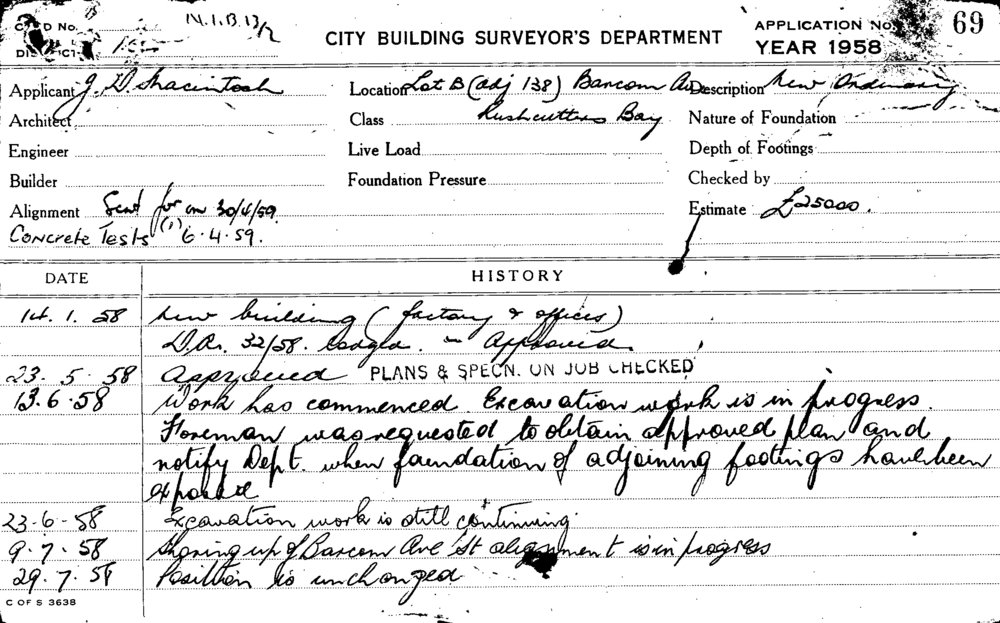 CARD No. N.I.B. 13/2 CITY BUILDING SURVEYOR'S DEPARTMENT APPLICATION No. 69
DISTRICT YEAR 1958
Applicant J. D. Macintosh Location Lot B (adj 138) Barcom Av Description New Ordinary
Architect Class Rushcutters Bay Nature of Foundation
Engineer Live Load Depth of Footings
Builder Foundation Pressure Checked by
Alignment Sent for on 30/4/59. Estimate £25000.
Concrete Tests (1) 6.4.59.
DATE HISTORY
14.1.58 New building (factory & offices)
D.A. 32/58. lodged. Approved.
23.5.58 Approved PLANS & SPECN. ON JOB CHECKED
13.6.58 Work has commenced. Excavation work is in progress.
Foreman was requested to obtain approved plan and
notify Dept. when foundation of adjoining footings have been
exposed
23-6-58 Excavation work is still continuing.
9.7.58 Shoring up of Barcom Ave St alignment is in progress
29.7.58 Position is unchanged
C OF S 3638